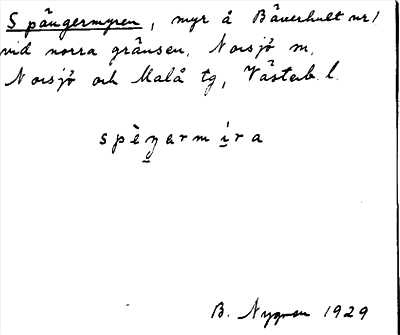 Spångermyren, myr å Bäverhult nr 1
vid norra gränsen, Norsjö sn,
Norsjö och Malå tg, Västerb. l.
spèŋermíra
B. Nygren 1929